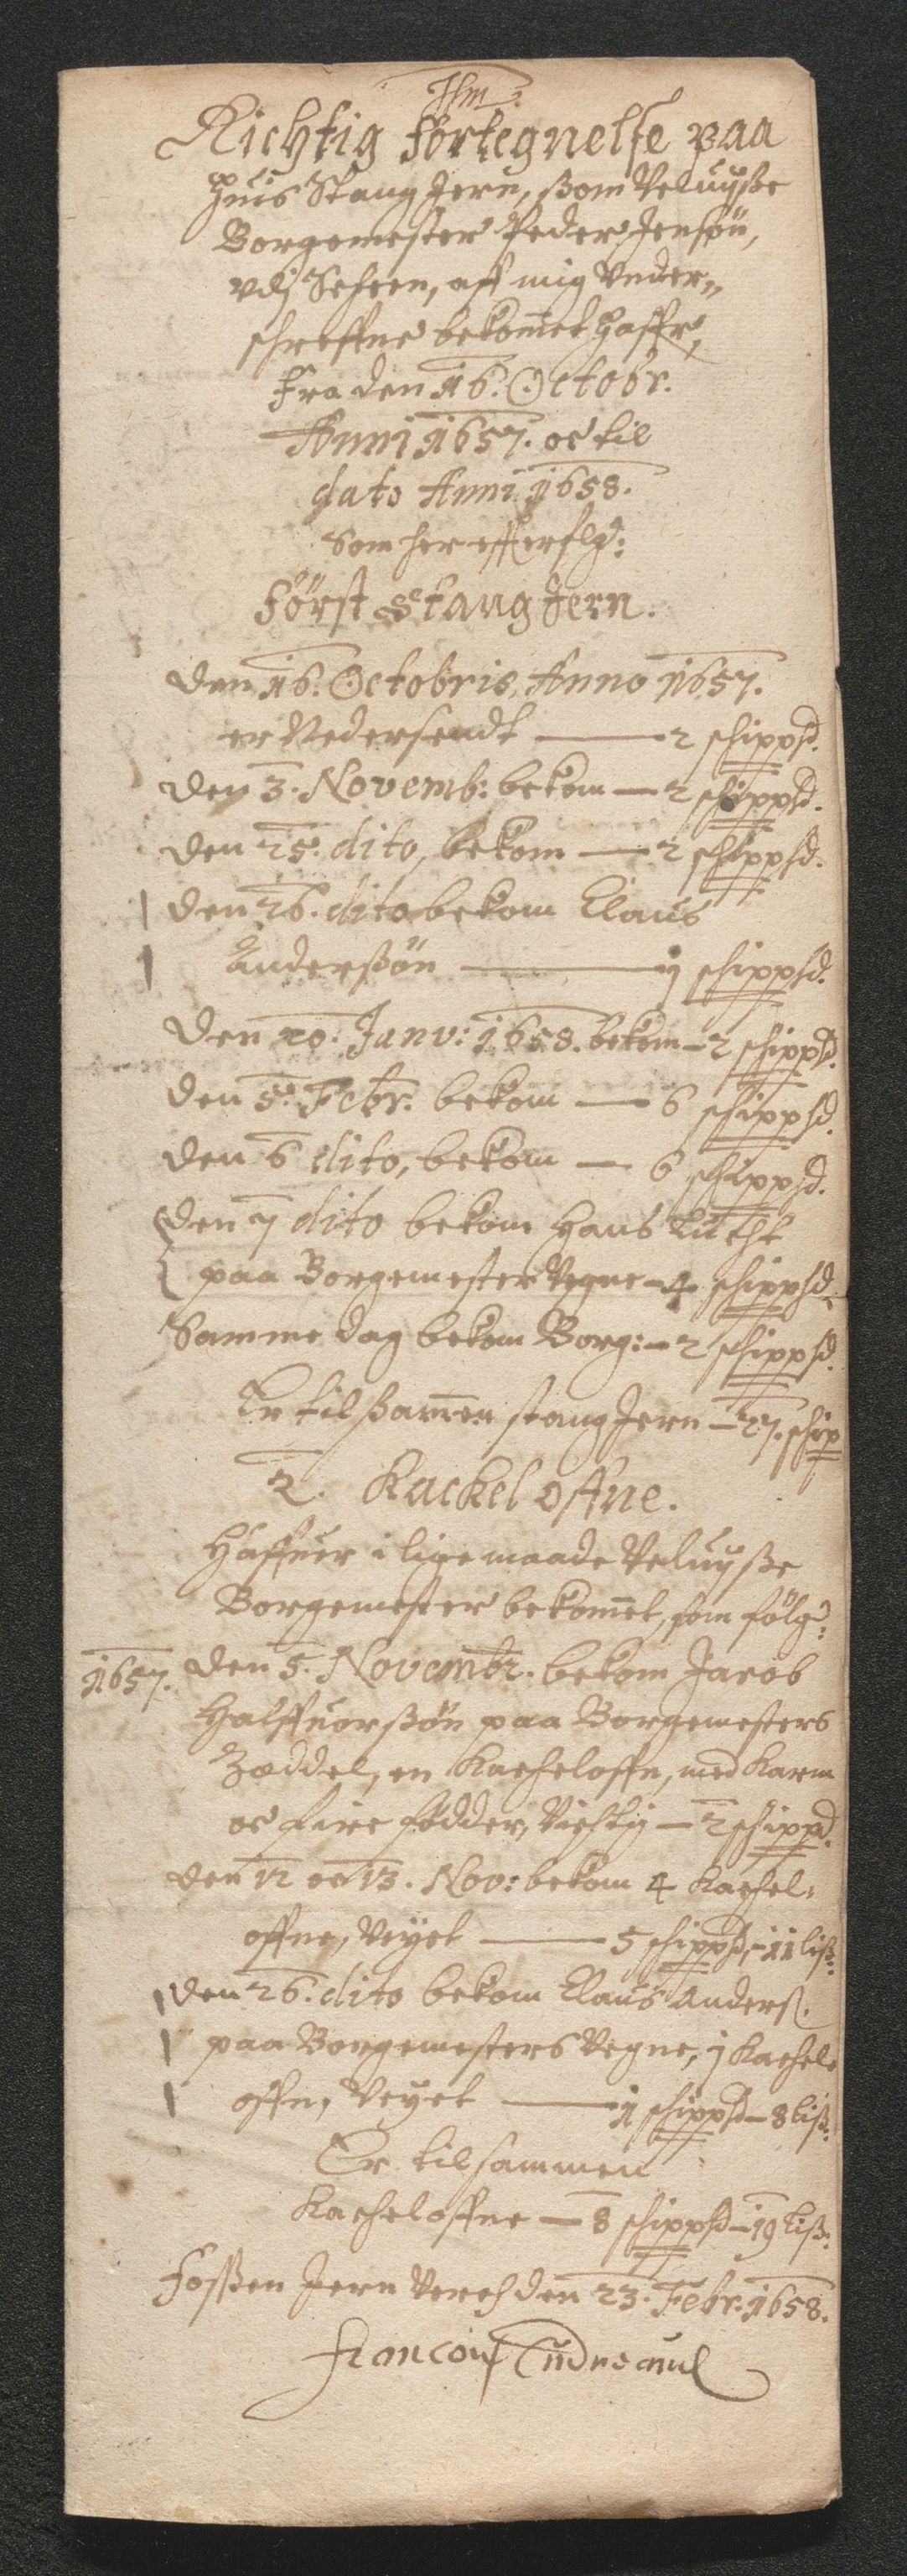 Jhm:
Richtig förtegnelse paa
huis Stang Jern, ßom Veluyße
Borgemester Peder Jensøn,
vdj Scheen, aff mig Under„
schreffne bekommet haffr,
fra den 16. Octobr.
Anni 1657. oc til
dato Anni 1658.
Som her effterflg:
Först Stang Jern.
Den 16. Octobris, Anno 1657.
er Nedersendt — 2 schippd.
Den 3. Novemb: bekom — 2 schippd.
Den 25. dito, bekom — 2 schippd.
Den 26. dito bekom Claus
Anderßøn — 1 schippd.
Den 20. Janv: 1658. bekom — 2 schippd.
Den 5. Febr. bekom — 6 schippd.
Den 6 dito, bekom — 6 schippd.
Den 7 dito bekom Hans
paa Borgemester Vegne — 4 schippd.
Samme dag bekom Borg: — 2 schippd.
Er tilßamen stang Jern — 27. schip
2. Kackel offne.
Haffuer i lige maade Veluyße
Borgemester bekomet, som fölg:
1657. Den 5. Novembr. bekom Jacob
Halffuorßøn paa Borgemesters
Zeddel, en Kacheloffn, med Karm
oc fire födder, Vichtig — 2 schippd.
Den 12 oc 13. Nov: bekom 4 Kachel:
offne, Veyet — 5 schippd — 11 liß:
Den 26. dito bekom Claus Anderß.
paa Borgemesters Vegne, 1 Kachel
offn, Veyet — 1 schippd — 8 liß:
Er tilsammen
Kacheloffne — 8 schippd — 19 liß:
Foßßen Jern Verch den 23. Febr. 1658.
Francois